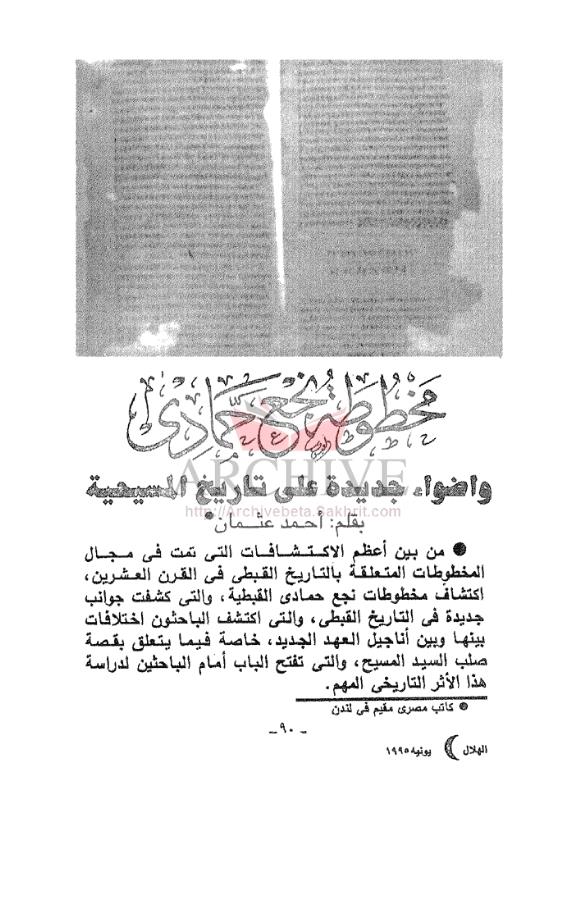 مخطوطة نجع حمادى
واضواء جديدة على تاريخ المسيحية
ARCHIVE
http://Archivebeta.Sakhrit.com
بقلم: أحمد عثمان*
● من بين أعظم الاكتشافات التى تمت فى مجال
المخطوطات المتعلقة بالتاريخ القبطى فى القرن العشرين،
اكتشاف مخطوطات نجع حمادى القبطية، والتى كشفت جوانب
جديدة فى التاريخ القبطى، والتى اكتشف الباحثون اختلافات
بينها وبين أناجيل العهد الجديد، خاصة فيما يتعلق بقصة
صلب السيد المسيح، والتى تفتح الباب أمام الباحثين لدراسة
هذا الأثر التاريخى المهم.
● كاتب مصرى مقيم فى لندن
ـ ٩٠ ـ
الهلال يونيه ١٩٩٥